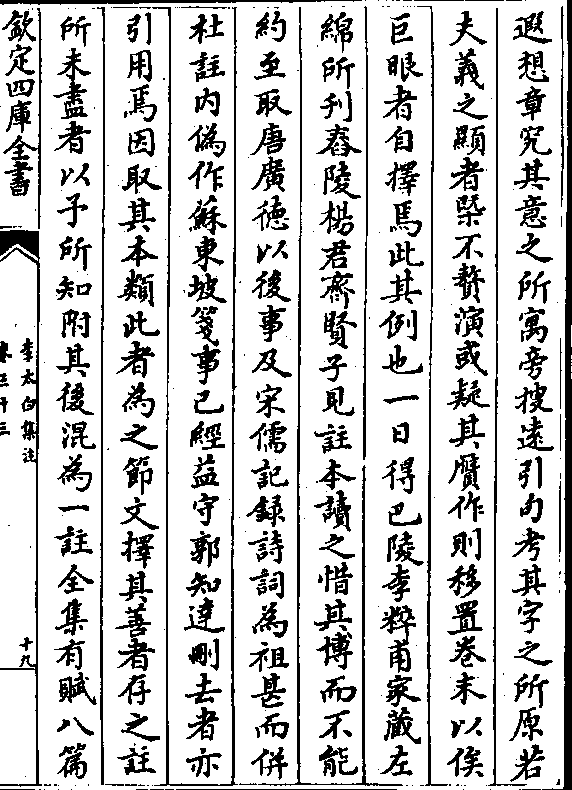 遐想章究其意之所寓旁搜遠引句考其字之所原若
夫義之顯者槩不贅演或疑其贗作則移置卷末以俟
巨眼者自擇焉此其例也一日得巴陵李粹甫家藏左
綿所刋舂陵楊君齊賢子見註本讀之惜其博而不能
約至取唐廣徳以後事及宋儒記録詩詞為祖甚而併
杜註内偽作蘇東坡箋事已經益守郭知達刪去者亦
引用焉因取其本類此者為之節文擇其善者存之註
所未盡者以予所知附其後混為一註全集有賦八篇
欽定四庫全書
李太白集注
卷三十三
十九